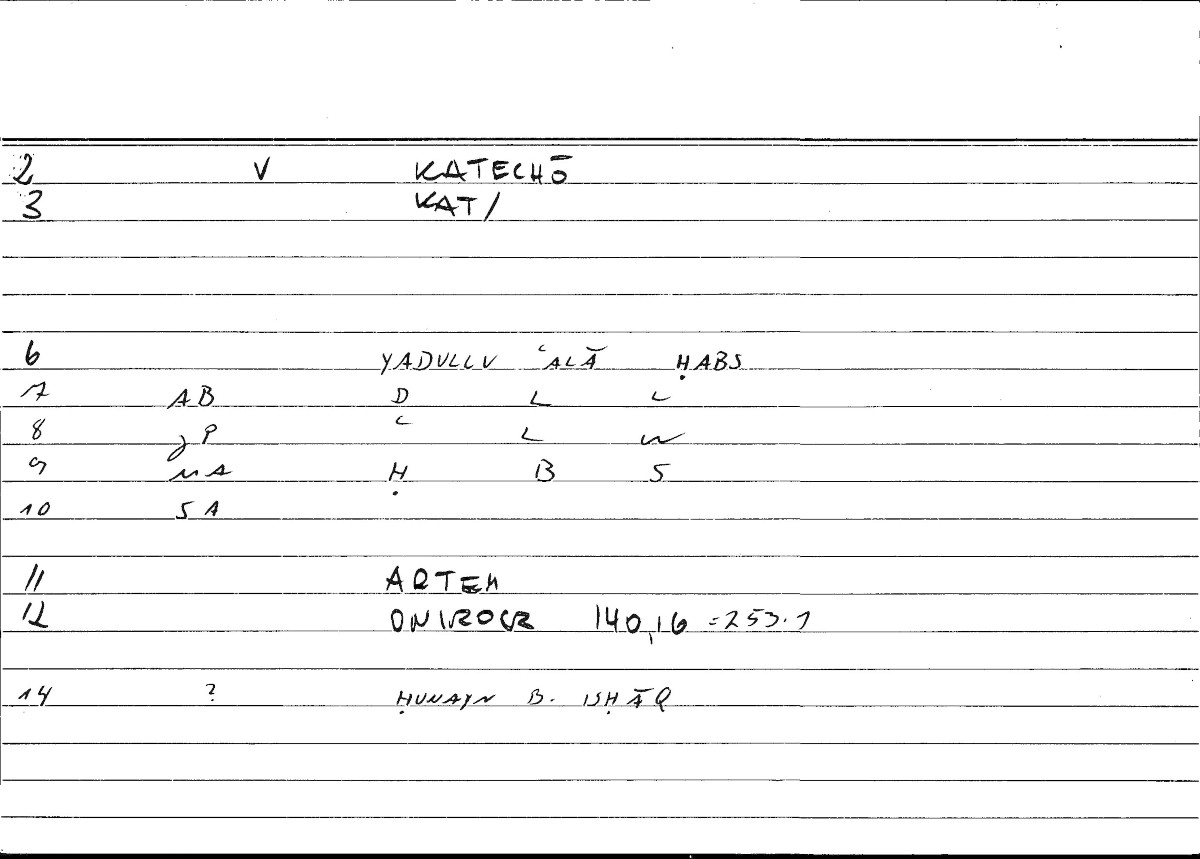 2 V KATECHŌ
3 KAT/
6 YADULLU ʿALĀ ḤABS
7 AB D L L
8 P ʿ L W
9 MA Ḥ B S
10 SA
11 ARTEM
12 ONIROCR 140,16 =253.1
14 ? ḤUNAYN B. ISḤĀQ